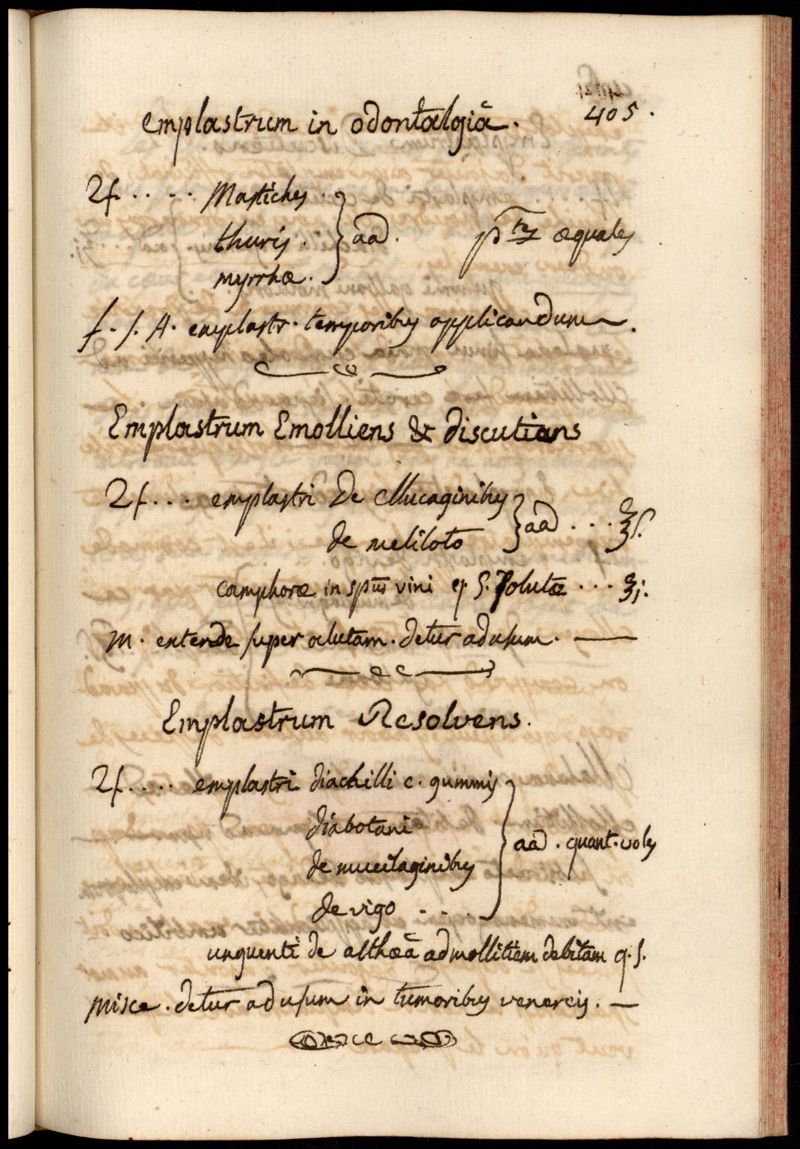 405.
Emplastrum in odontalgiâ.
♃ .... Mastiches .
thuris .
myrrhæ .
} aa͞. p^tes æquales
f. s. A. emplastr. temporibus applicandum.
Emplastrum Emolliens & discutians
♃ ... emplastri de Mucaginibus
de meliloto
} aa͞ ... ℥ſ.
camphoræ in sp͞u vini q. S. solutæ ... ʒj.
M. extende super alutam. detur ad usum. —
Emplastrum Resolvens.
♃ .... emplastri diachilli c. gummis
diabotani
de mucilaginibus
de vigo ....
} aa͞. quant. voles
unguenti de althæâ ad mollitiem debitam q. s.
Misce. detur ad usum in tumoribus venereis. —